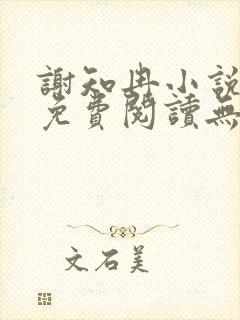 謝知冉小說
免費閱讀無
文石美